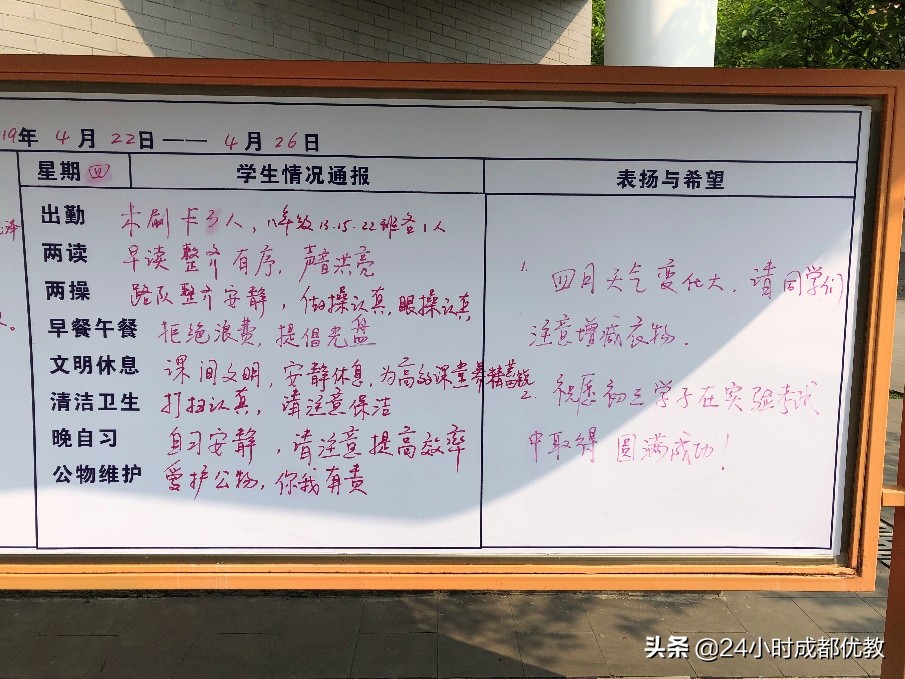 19年 4 月 22日 —— 4 月 26 日
星期 四 学生情况通报 表扬与希望
出勤 未刷卡3人，八年级13.15.22班各1人
两读 早读整齐有序，声音洪亮
两操 路队整齐安静，做操认真，眼操认真
早餐午餐 拒绝浪费，提倡光盘
文明休息 课间文明，安静休息，为高效课堂养精蓄锐
清洁卫生 打扫认真，请注意保洁
晚自习 自习安静，请注意提高效率
公物维护 爱护公物，你我有责
1. 四月天气变化大，请同学们
注意增减衣物.
2. 祝愿初三学子在实验考试
中取得 圆满成功！
泽
。
头条 @24小时成都优教